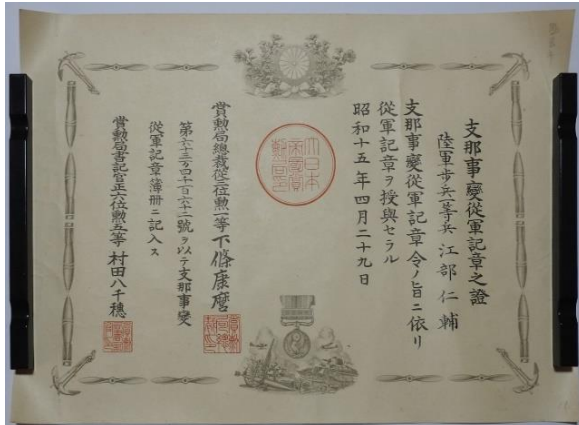 支那事變從軍記章之證
陸軍步兵一等兵 江部仁輔
支那事變從軍記章令ノ旨ニ依リ
從軍記章ヲ授與セラル
昭和十五年四月二十九日
大日本
帝國賞
勳局印
賞勲局總裁從三位勲一等下條康麿
第六十三万四千百六十二號ヲ以テ支那事變
從軍記章簿册ニ記入ス
賞勲局書記官正六位勲五等 村田八千穂